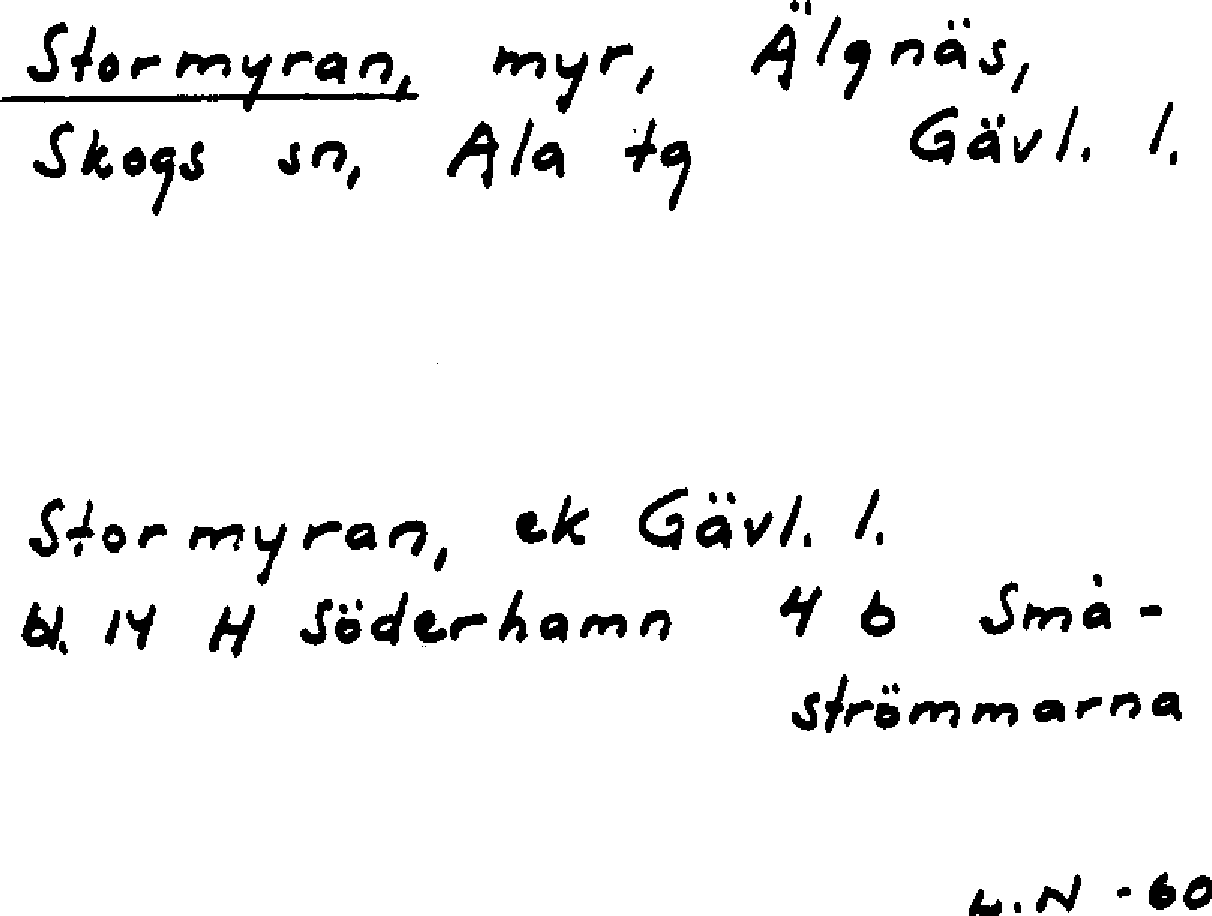 Stormyran, myr, Älgnäs,
Skogs sn, Ala tg Gävl. l.
Stormyran, ek Gävl. l.
bl. 14 H Söderhamn 4 b Små-
strömmarna
L.N -60